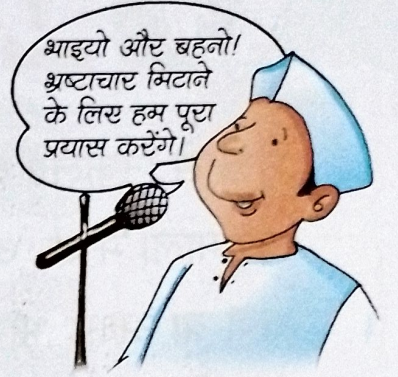 भाइयो और बहनो!
भ्रष्टाचार मिटाने
के लिए हम पूरा
प्रयास करेंगे।